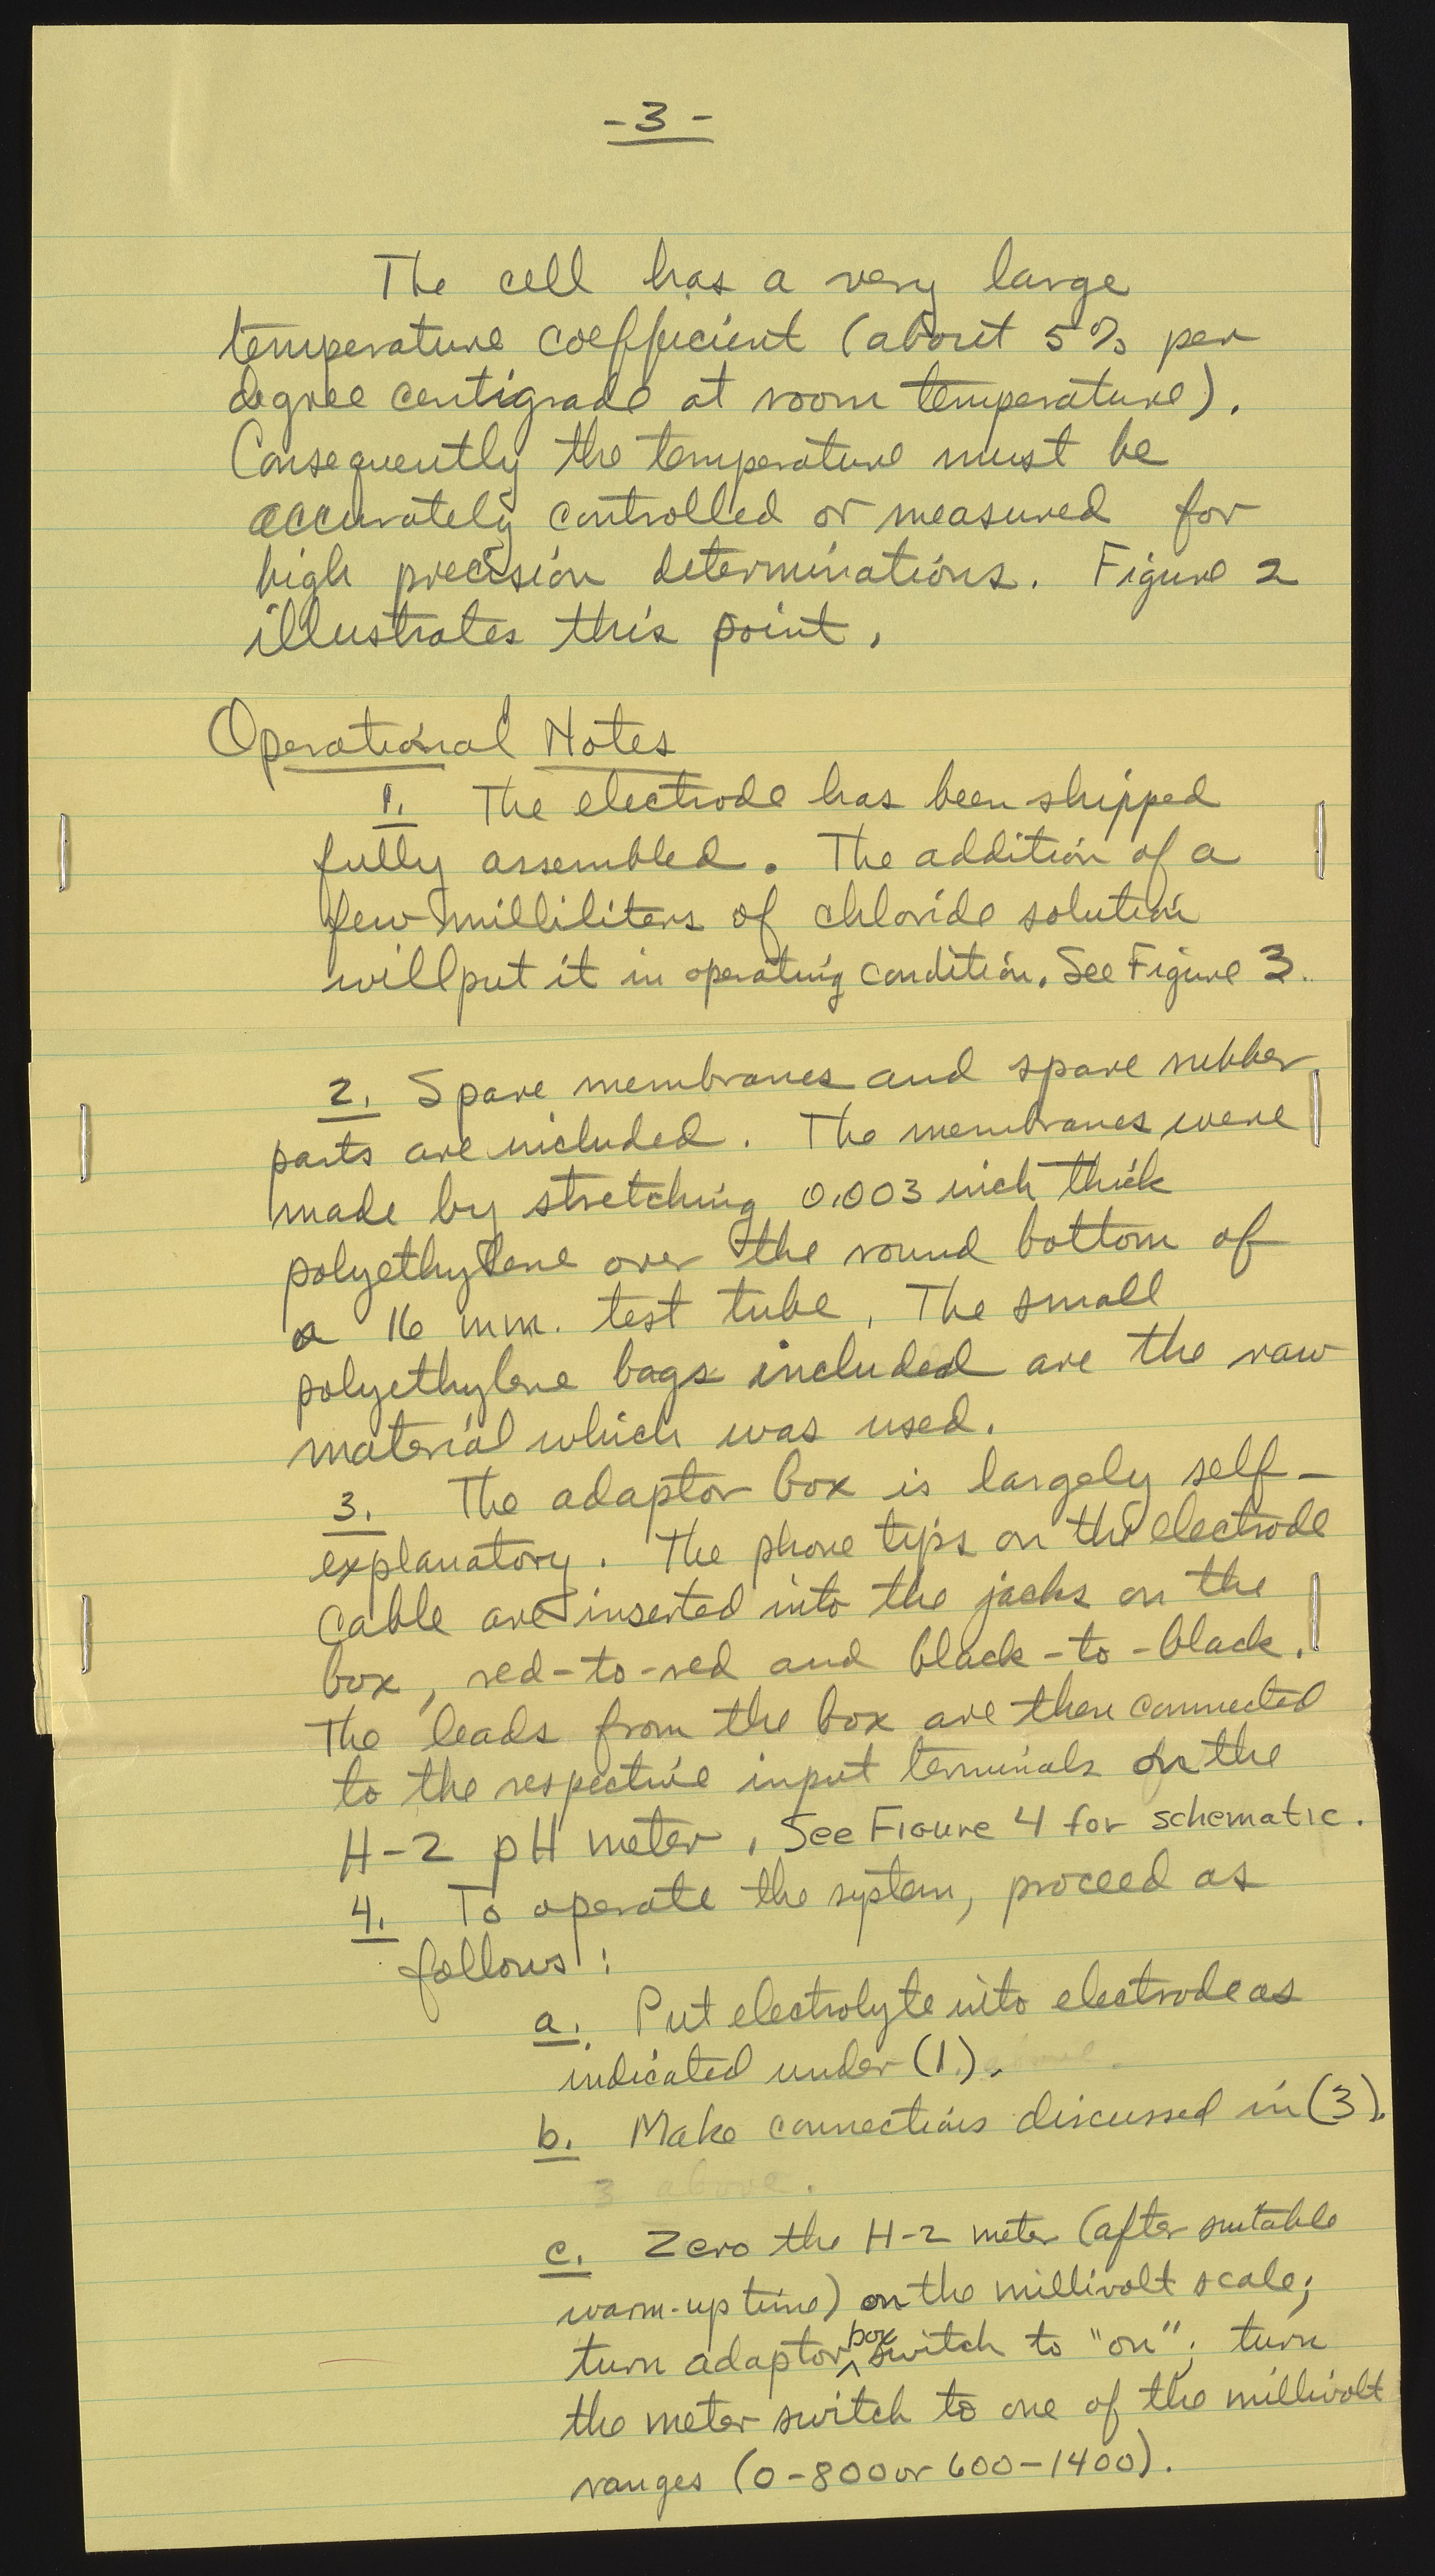 - 3 -
The cell has a very large
temperature coefficient (about 5% per
degree centigrade at room temperature).
Consequently the temperature must be
accurately controlled or measured for
high precision determinations. Figure 2
illustrates this point.
Operational Notes
1. The electrode has been shipped
fully assembled. The addition of a
few milliliters of chloride solution
will put it in operating condition. See Figure 3.
2. Spare membranes and spare rubber
parts are included. The membranes were
made by stretching 0.003 inch thick
polyethylene over the round bottom of
a 16 mm. test tube. The small
polyethylene bags included are the raw
material which was used.
3. The adaptor box is largely self-
explanatory. The phone tips on the electrode
cable are inserted into the jacks on the
box, red-to-red and black-to-black.
The leads from the box are then connected
to the respective input terminals on the
H-2 pH meter. See Figure 4 for schematic.
4. To operate the system, proceed as
follows:
a. Put electrolyte into electrode as
indicated under (1). above.
b. Make connections discussed in (3).
3 above.
c. Zero the H-2 meter (after suitable
warm-up time) on the millivolt scale;
turn adaptor box switch to "on"; turn
the meter switch to one of the millivolt
ranges (0-800 or 600-1400).